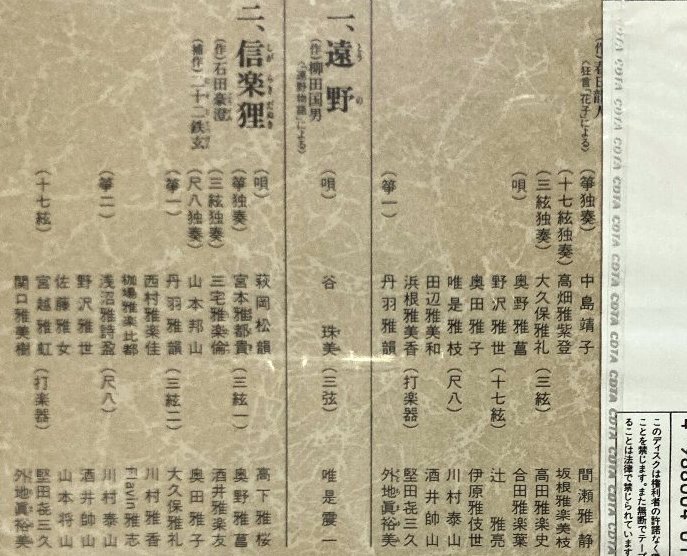 （狂言「花子」による）
（箏独奏） 中島靖子 間瀬雅静
（十七絃独奏） 高畑雅紫登 坂根雅楽美枝
（三絃独奏） 大久保雅礼 （三絃） 高田雅楽史
（唄） 奥野雅菖 合田雅楽葉
野沢雅世 （十七絃） 辻 雅亮
奥田雅子 伊原雅伎世
唯是雅枝 （尺八） 川村泰山
田辺雅美和 酒井帥山
浜根雅美香 （打楽器） 堅田㐂三久
（箏一） 丹羽雅韻 外地眞裕美
一、遠野
とおの
（作）柳田国男
（「遠野物語」による）
（唄） 谷 珠美 （三弦） 唯是震一
二、信楽狸
しがらきだぬき
（作）石田豪澄
（補作）二十二鉄玄
（唄） 萩岡松韻 高下雅桜
（箏独奏） 宮本雅都貴 （三絃一） 奥野雅菖
（三絃独奏） 三宅雅楽倫 酒井雅楽友
（尺八独奏） 山本邦山 奥田雅子
（箏一） 丹羽雅韻 （三絃二） 大久保雅礼
西村雅楽佳 川村雅香
雅楽比都 Flavin雅志
（箏二） 浅沼雅詩盈 （尺八） 川村泰山
野沢雅世 酒井帥山
佐藤雅女 山本将山
（十七絃） 宮越雅虹 （打楽器） 堅田㐂三久
関口雅美樹 外地眞裕美
CDTA CDTA CDTA CDTA CDTA CDTA CDTA CDTA CDTA CDTA
このディスクは権利者の許諾なく
ことを禁じます。また無断でテー
ることは法律で禁じられています